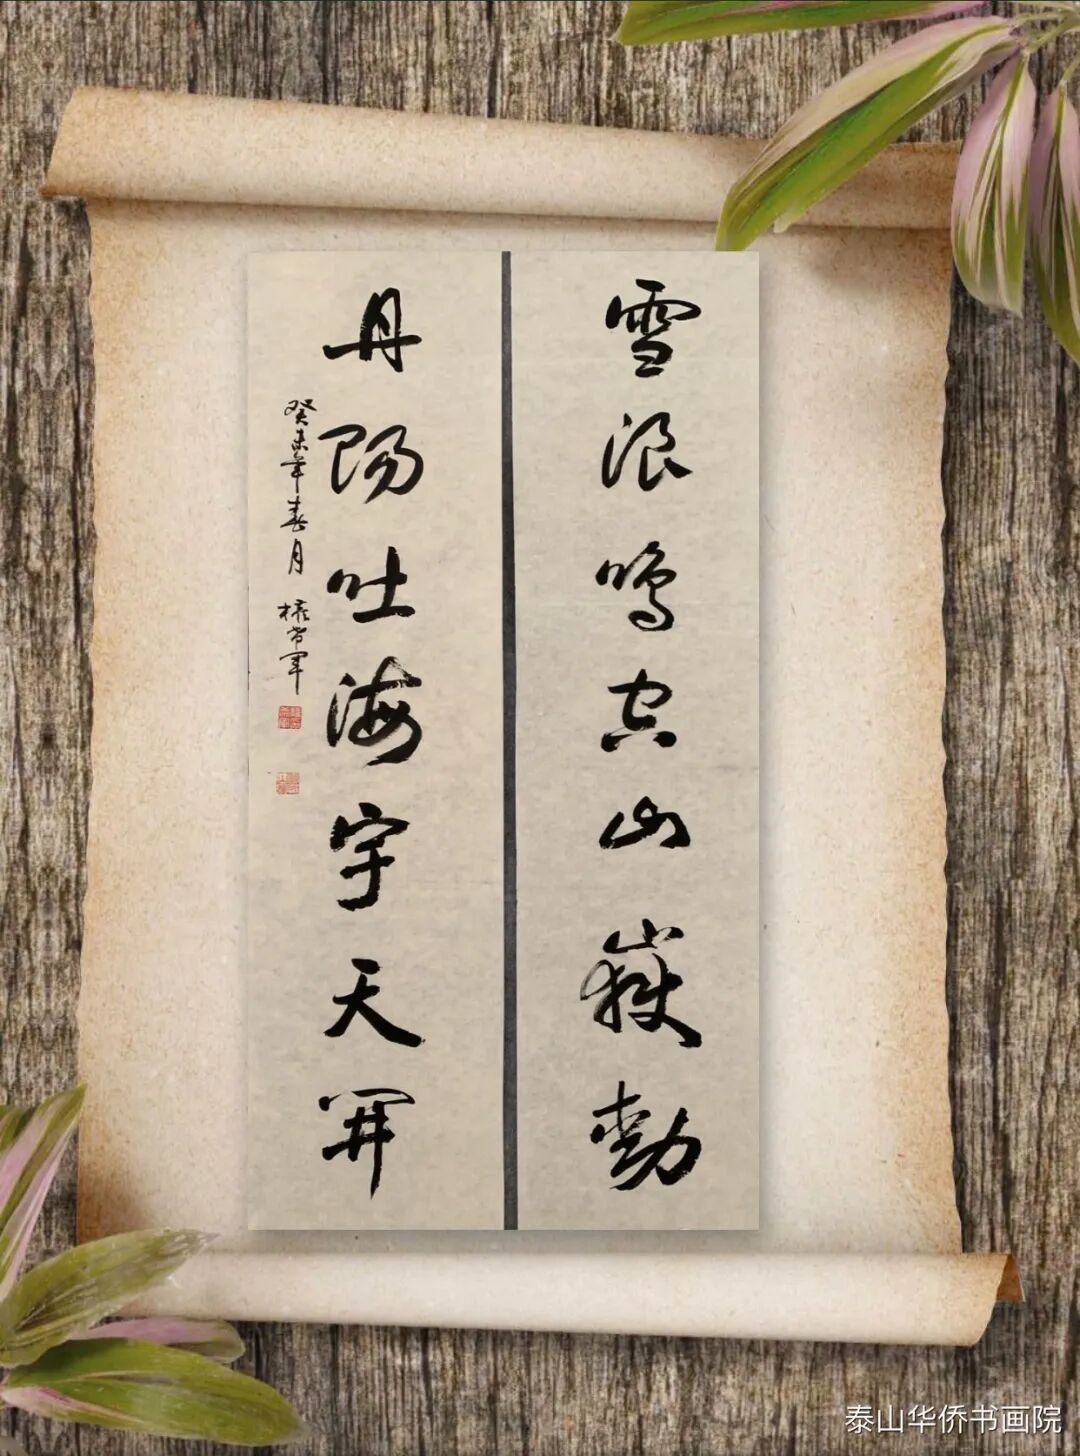 雪浪鸣空山岳动
丹阳吐海宇天开
癸未年春月
泰山华侨书画院